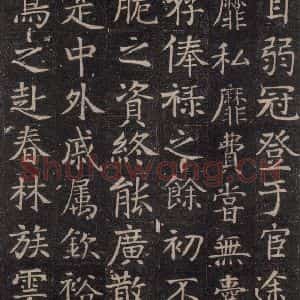 自弱冠登于官途
靡私靡費嘗無
俸禄之餘初不
脆之資終能廣散
是中外戚属欽裕
之赴春林族雲
Shufawang.Cn